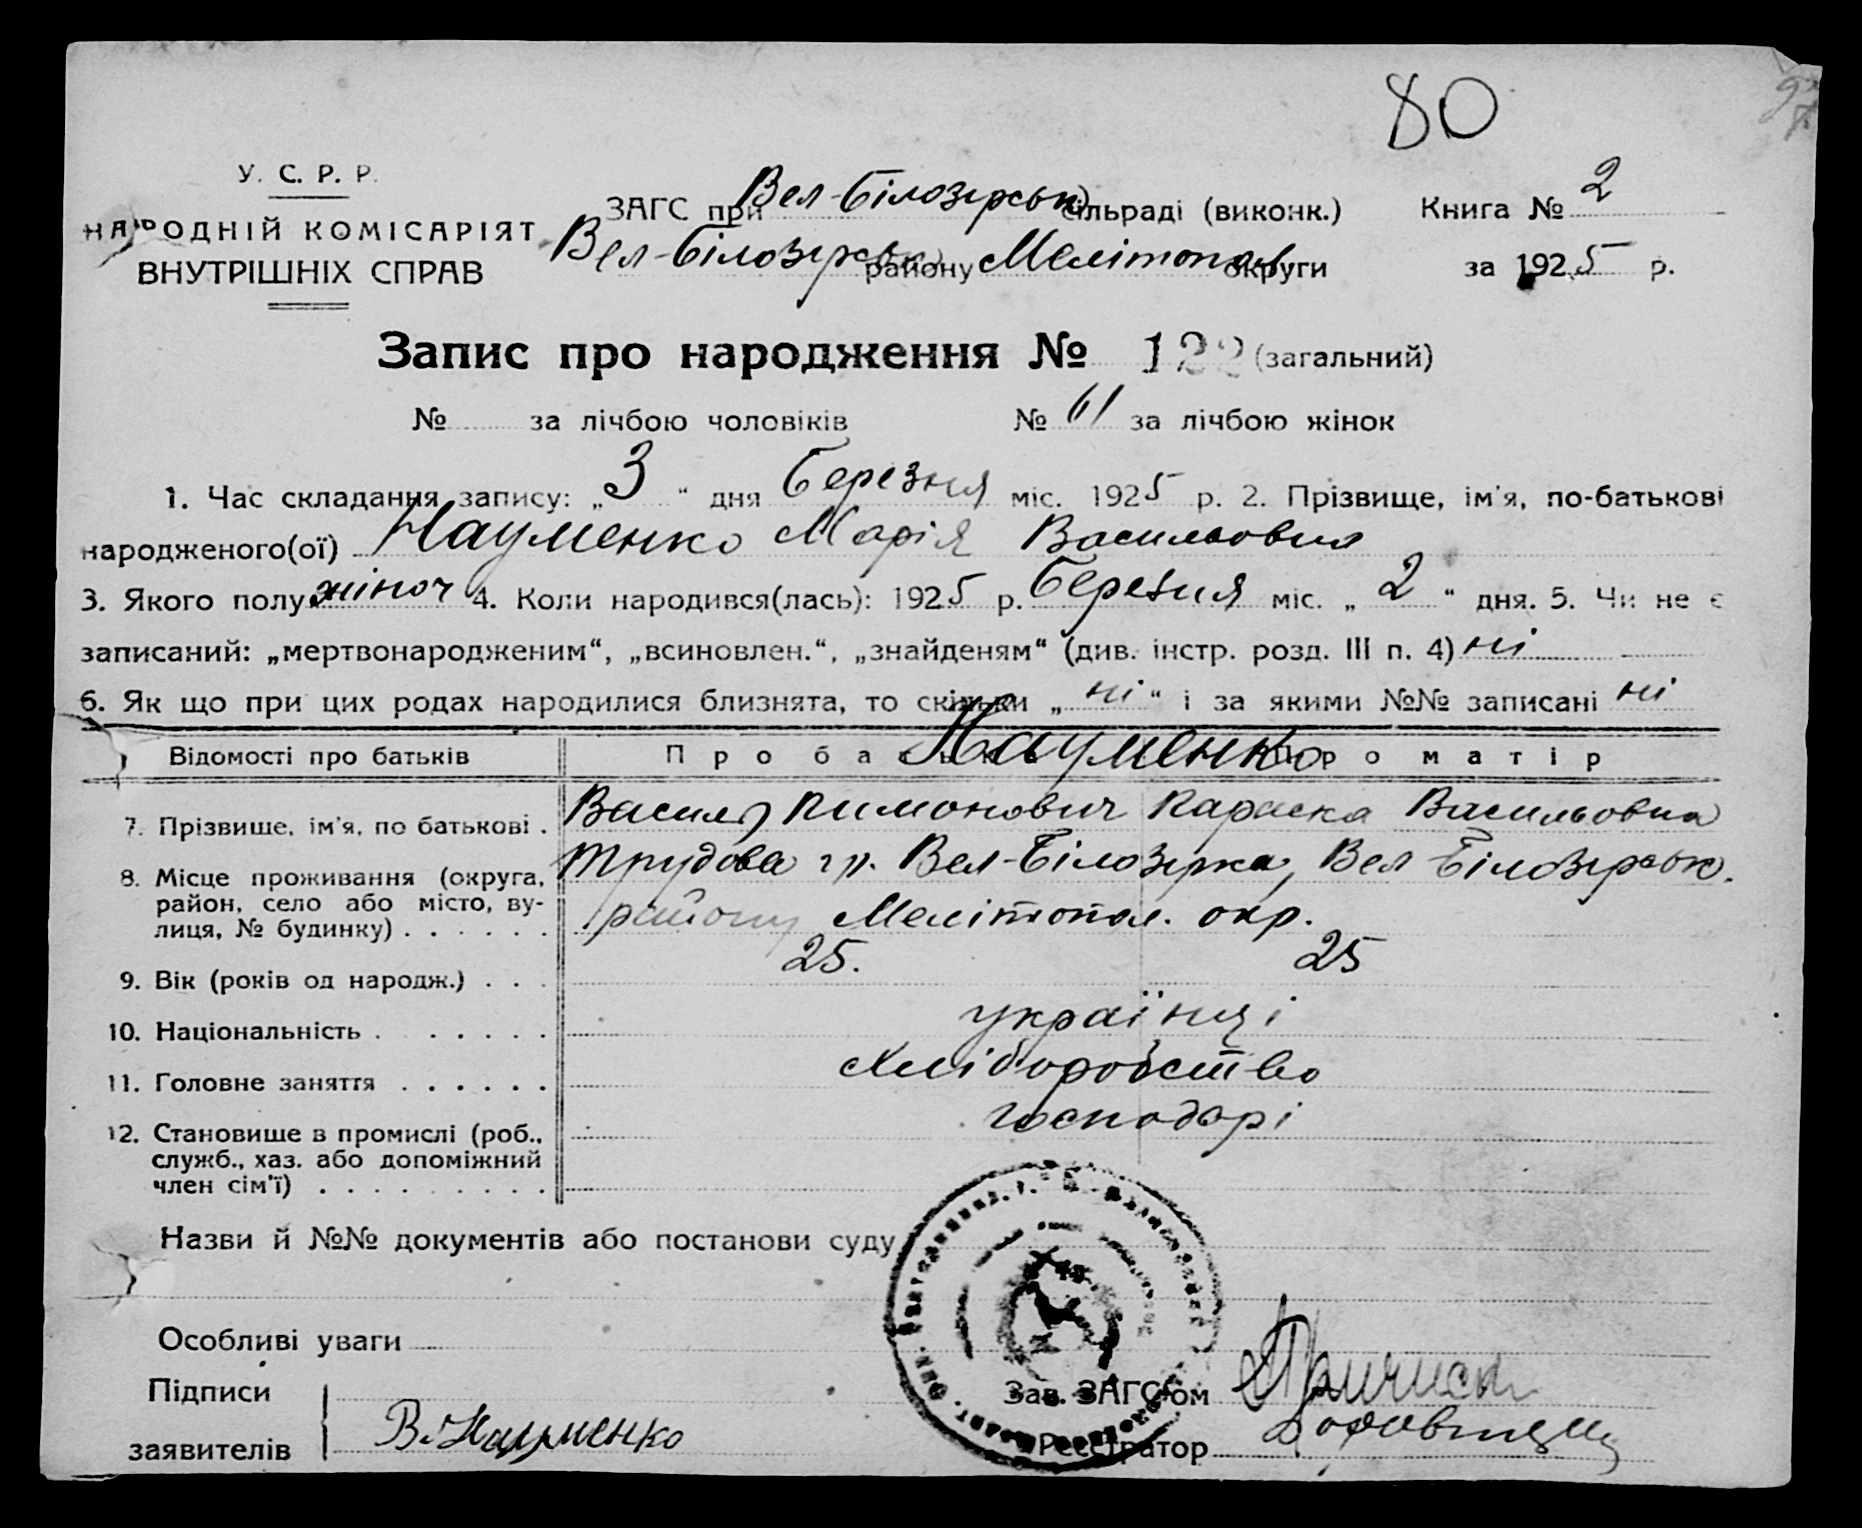 80
У. С. Р. Р.
НАРОДНІЙ КОМІСАРІЯТ
ВНУТРІШНІХ СПРАВ
ЗАГС при Вел-Білозерськ сільраді (виконк.) Книга № 2
Вел-Білозерськ району Мелітопол округи за 1925 р.
Запис про народження № 122 (загальний)
№ за лічбою чоловіків № 61 за лічбою жінок
1. Час складання запису: „3“ дня Березня міс. 1925 р. 2. Прізвище, ім'я, по-батькові
народженого(ої) Науменко Марія Васильовна
3. Якого полу жіноч 4. Коли народився(лась): 1925 р. Березня міс. „2“ дня. 5. Чи не є
записаний: „мертвонародженим“, „всиновлен.“, „знайденям“ (див. інстр. розд. III п. 4) ні
6. Як що при цих родах народилися близнята, то скільки „ні“ і за якими №№ записані ні
Відомості про батьків Про батька Про матір
Науменко
7. Прізвище, ім'я, по батькові . Василь Пимонович Параска Васильовна
8. Місце проживання (округа, район, село або місто, вулиця, № будинку) . . . . . . Трудова гр. Вел-Білозерка, Вел Білозерськ.
району Мелітопол. окр.
9. Вік (років од народж.) . . . 25. 25
10. Національність . . . . . . . українці
11. Головне заняття . . . . . . Хліборобство
12. Становище в промислі (роб., служб., хаз. або допоміжний член сім'ї) . . . . . . . . . господарі
Назви й №№ документів або постанови суду
Особливі уваги
Підписи
заявителів В. Науменко
Зав. ЗАГС'ом
Реєстратор